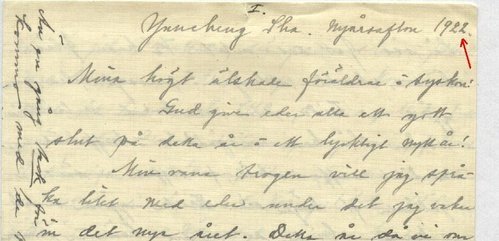 I.
Yuncheng Sha. Nyårsafton 1922.
Mina högt älskade föräldrar o syskon!
Gud give eder alla ett gott
slut på detta år o ett lyckligt nytt år!
Min vana trogen vill jag språ-
ka litet med eder under det jag vakar
in det nya året. Detta är då vi
Än en gång tack för
kommo med de